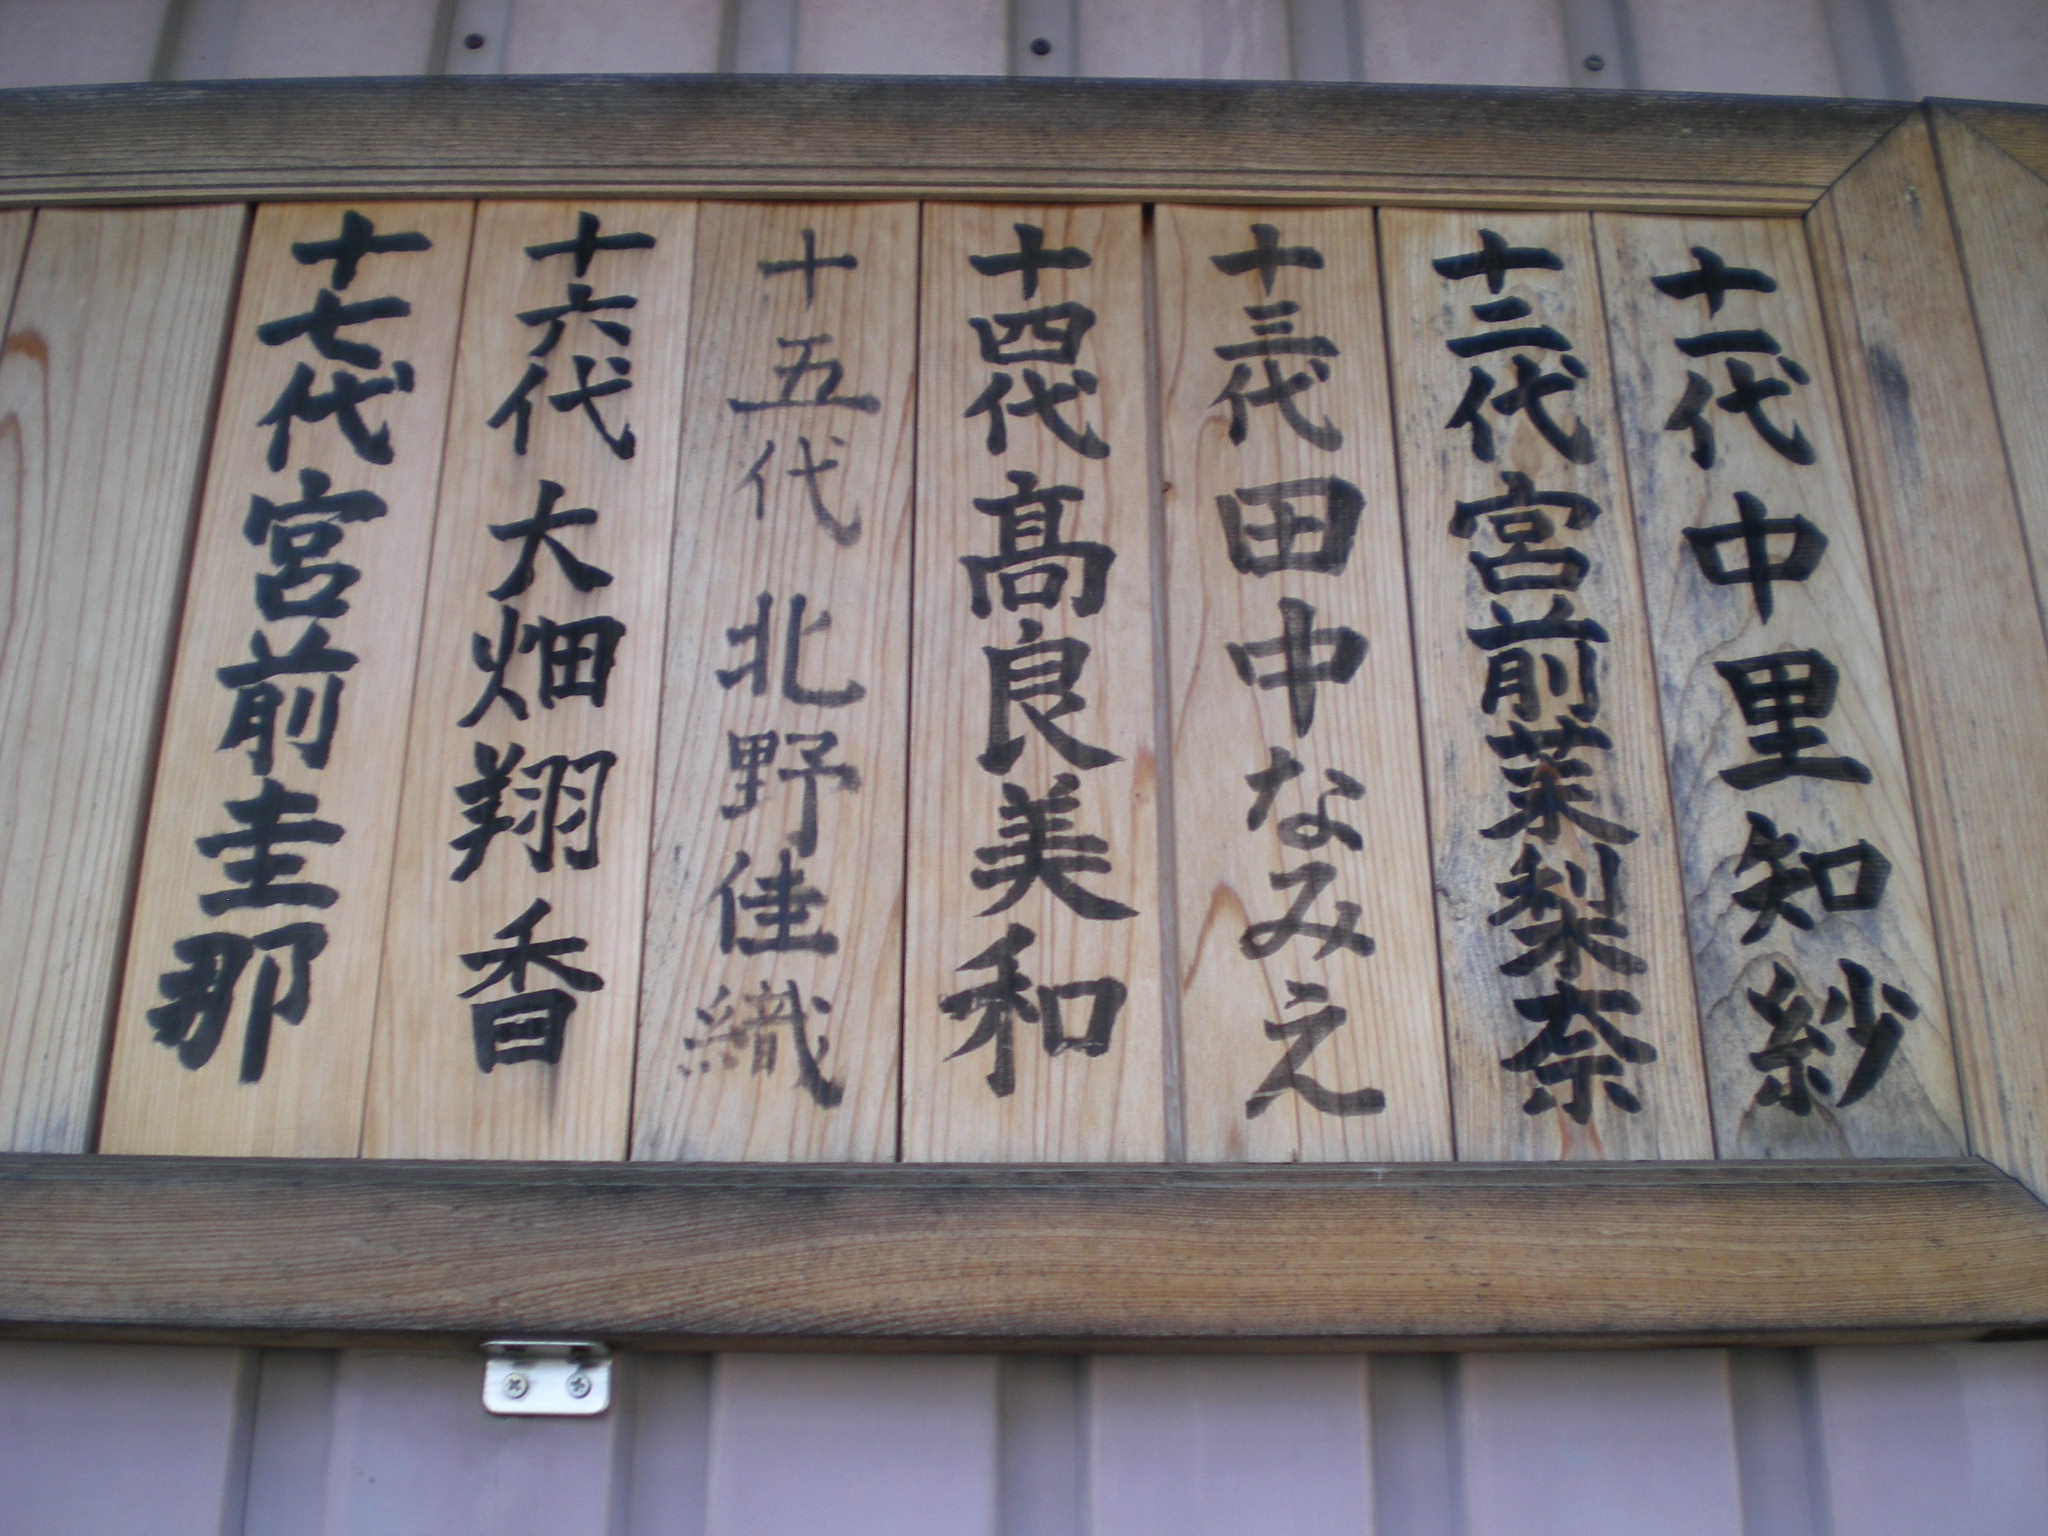 十一代 中里知紗
十二代 宮前茉梨奈
十三代 田中なみえ
十四代 髙良美和
十五代 北野佳織
十六代 大畑翔香
十七代 宮前圭那